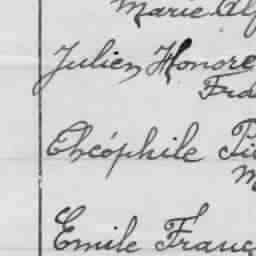 Marie Al
Julien Honoré
Fra
Théophile Pi
M
Emile Franç